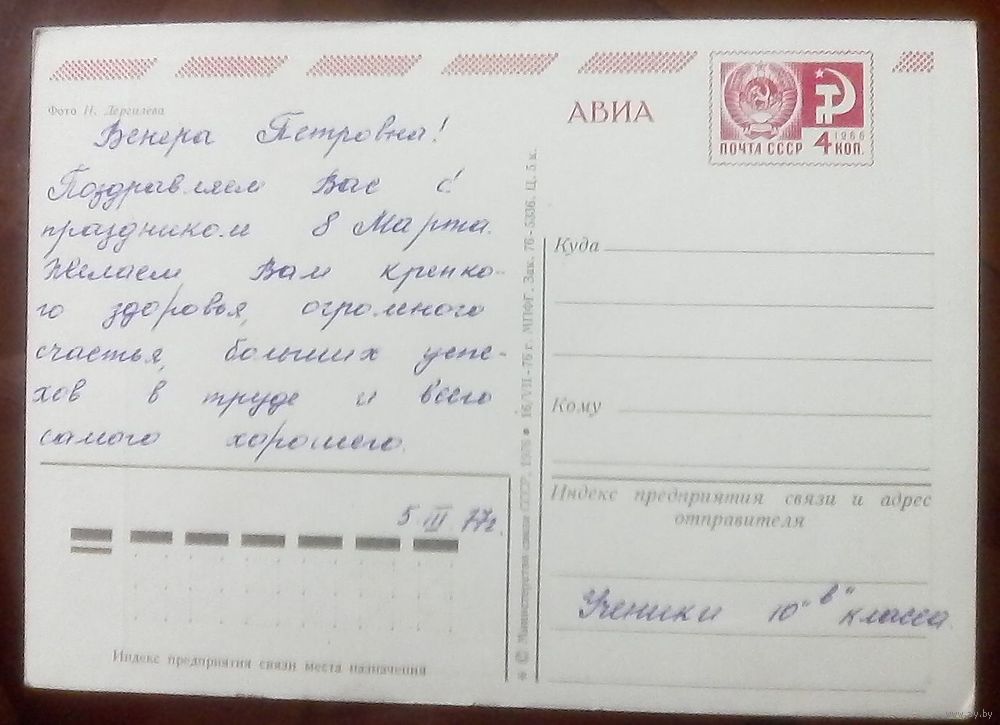 Фото Н. Дергилева
АВИА
ПОЧТА СССР
1966
4 КОП.
Венера Петровна!
Поздравляем Вас с
праздником 8 Марта.
Желаем Вам крепко-
го здоровья, огромного
счастья, больших успе-
хов в труде и всего
самого хорошего.
5 III 77г.
Индекс предприятия связи места назначения
* © Министерство связи СССР, 1976 * 16/VII-76 г. МПФГ. Зак. 76-5336. Ц. 5 к.
Куда
Кому
Индекс предприятия связи и адрес
отправителя
Ученики 10 "в" класса